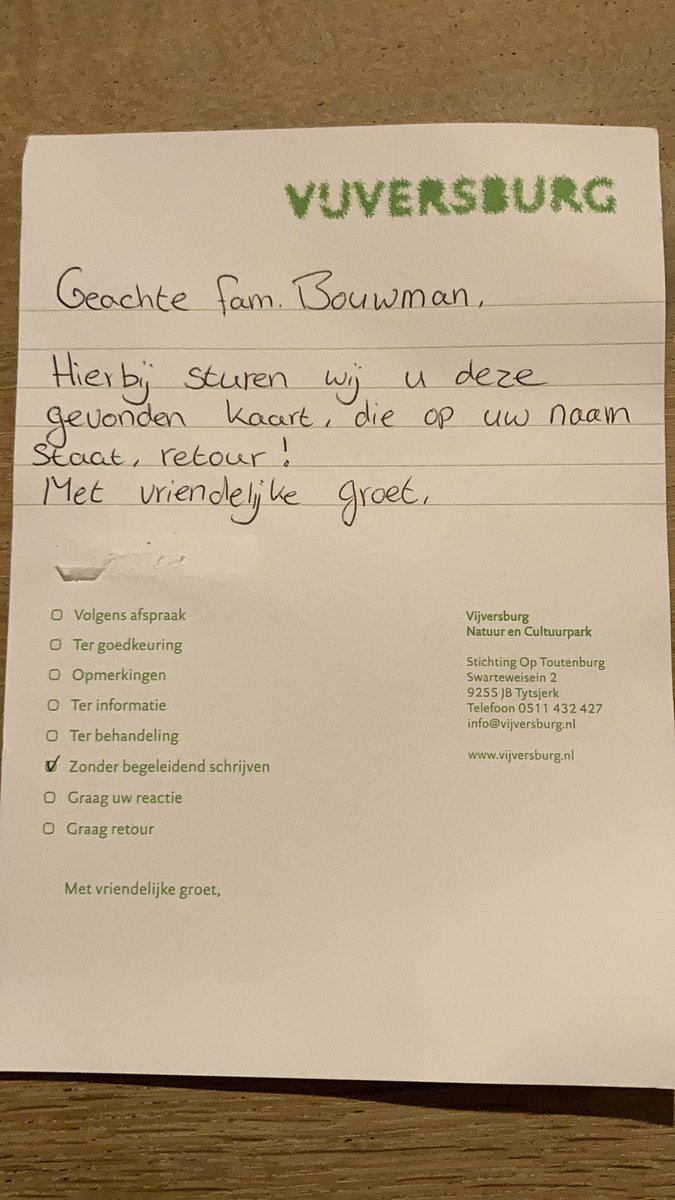 VIJVERSBURG
Geachte fam. Bouwman,
Hierbij sturen wij u deze
gevonden kaart, die op uw naam
staat, retour!
Met vriendelijke groet,
Volgens afspraak
Ter goedkeuring
Opmerkingen
Ter informatie
Ter behandeling
Zonder begeleidend schrijven
Graag uw reactie
Graag retour
Met vriendelijke groet,
Vijversburg
Natuur en Cultuurpark
Stichting Op Toutenburg
Swarteweisein 2
9255 JB Tytsjerk
Telefoon 0511 432 427
info@vijversburg.nl
www.vijversburg.nl